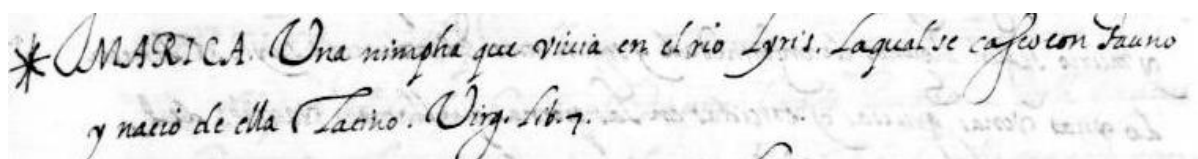 * MARICA. Una nimpha que viuia en el rio Lyris. Laqual se caso con Fauno
y nacio de ella Latino. Virg. lib. 7.